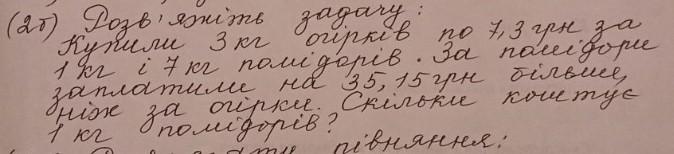 (2б) Розв'яжіть задачу:
Купили 3 кг огірків по 7,3 грн за
1 кг і 7 кг помідорів. За помідори
заплатили на 35,15 грн більше,
ніж за огірки. Скільки коштує
1 кг помідорів?
рівняння: